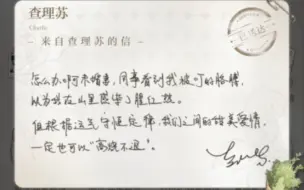 查理苏
Charlie
— 来自查理苏的信 —
已送达
怎么办啊未婚妻，同事看到我被叮的胳膊，
以为我在山里感染了登革热。
但根据运气守恒定律，我们之间的甜美爱情，
一定也可以“高烧不退”。
查理苏